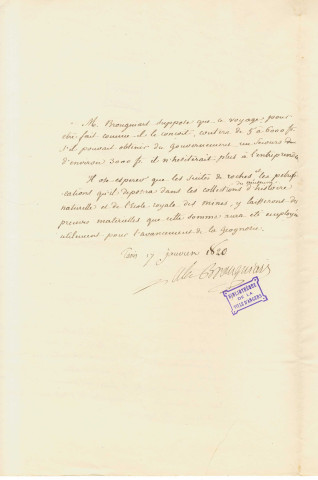 M. Brongniart suppose que ce voyage, pour
être fait comme il le conçoit, coutera de 5 a 6000 fr
S'il pouvait obtenir du Gouvernement un secours
d'environ 3000 fr il n'hésiterait plus à l'entreprendre
Il ose esperer que les suites de roches et les
qu'il deposera dans les collections d'histoire
naturelle et de l'école royale des mines, y laisseront des
preuves materielles que cette somme aura été employée
utilement pour l'avancement de la Geognosie.
Paris 17 janvier 1820
Alex Brongniart
BIBLIOTHEQUE
DE LA
VILLE D'ANGERS